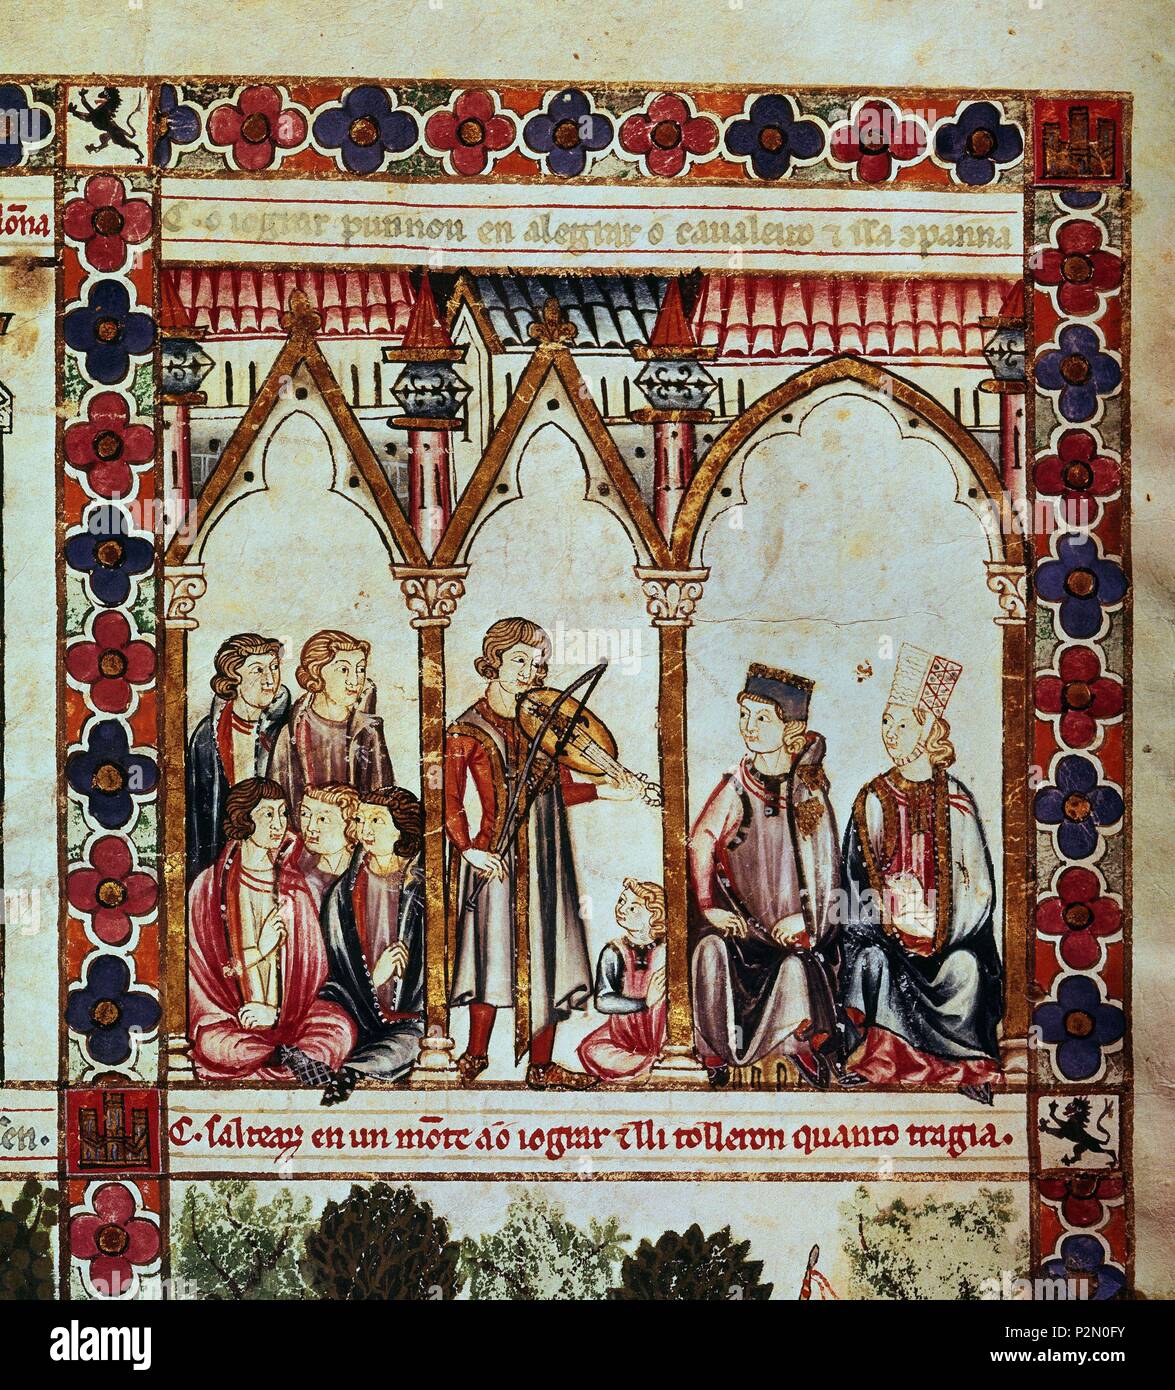 lõna
C. o iograr punnou en alegrar o caualeiro & issa cõpanna
sen.
C. saltearõ en un mõte ao iograr & lli tolleron quanto tragia.
a
alamy
Image ID: P2N0FY
www.alamy.com